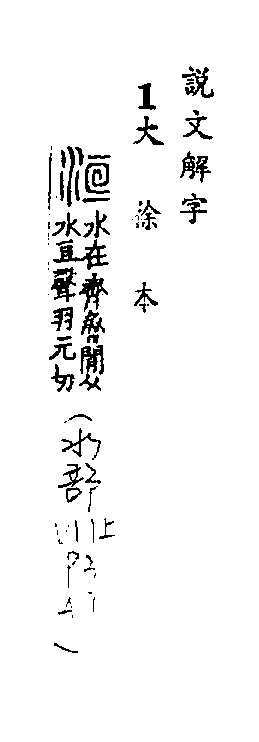 説文解字
1大徐本
洹
水在齊魯間从
水亘聲羽元切
(水部
11上
)